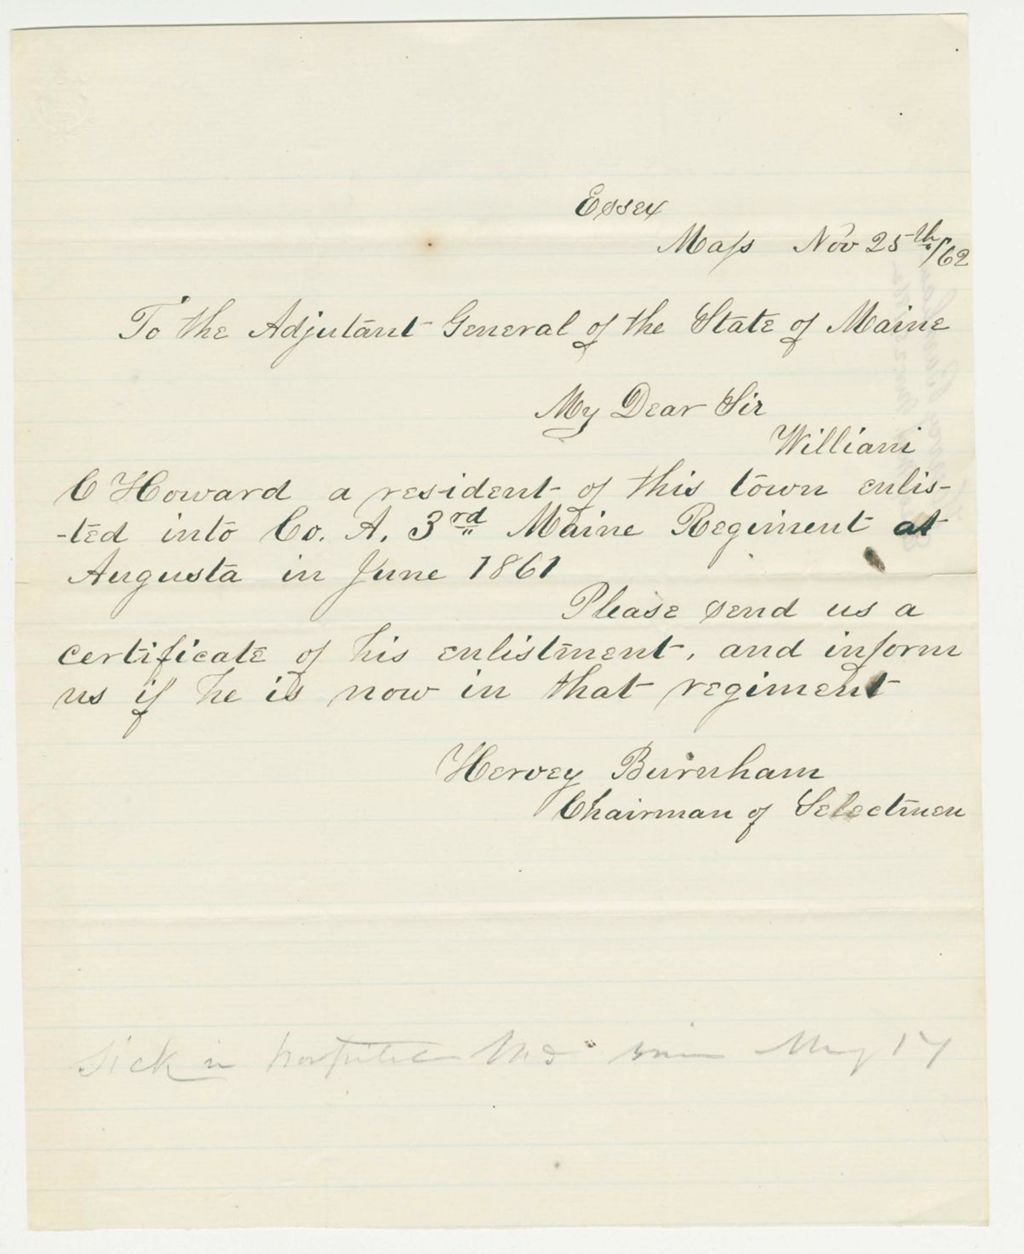 Essex
Mass Nov 25th/62
To the Adjutant General of the State of Maine
My Dear Sir
William
C Howard a resident of this town enlis-
-ted into Co. A. 3rd Maine Regiment at
Augusta in June 1861
Please send us a
certificate of his enlistment, and inform
us if he is now in that regiment
Hervey Burnham
Chairman of Selectmen
Sick in hospital since May 17